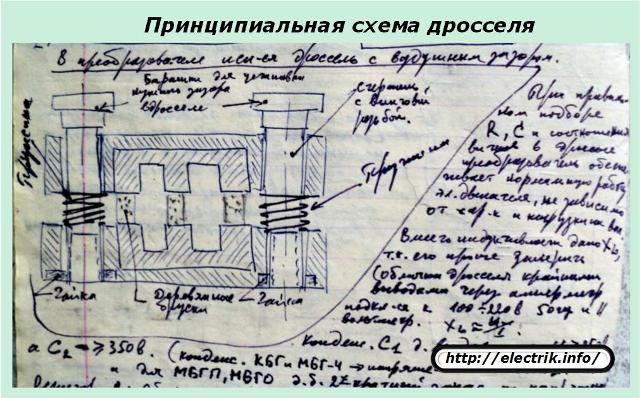 Принципиальная схема дросселя
В преобразователе исп-ся дроссель с воздушным зазором.
Барашки для установки
нужного зазора
в дросселе
Стержень
с винтовой
резьбой.
Пружина
Пружина
Гайка
Деревянные
бруски
Гайка
При правиль-
ном подборе
R, C и соотношений
витков в дросселе
преобразователь обесп
чивает нормальную работу
эл. двигателя, не зависимо
от хар-к и нагрузки
Вместо индуктивности дано XL,
т.к. его проще замерить
(обмотка дросселя крайними
выводами через амперметр
подкл-ся к 100÷220в 50гц и II
вольтметр. XL = U/I
а С2 → ≥350в. (конденс. КБГ и МБГ-Ч → напряже
Конденс. С1 д.
и для МБГП, МБГО д.б. 2х кратный
http://electrik.info/